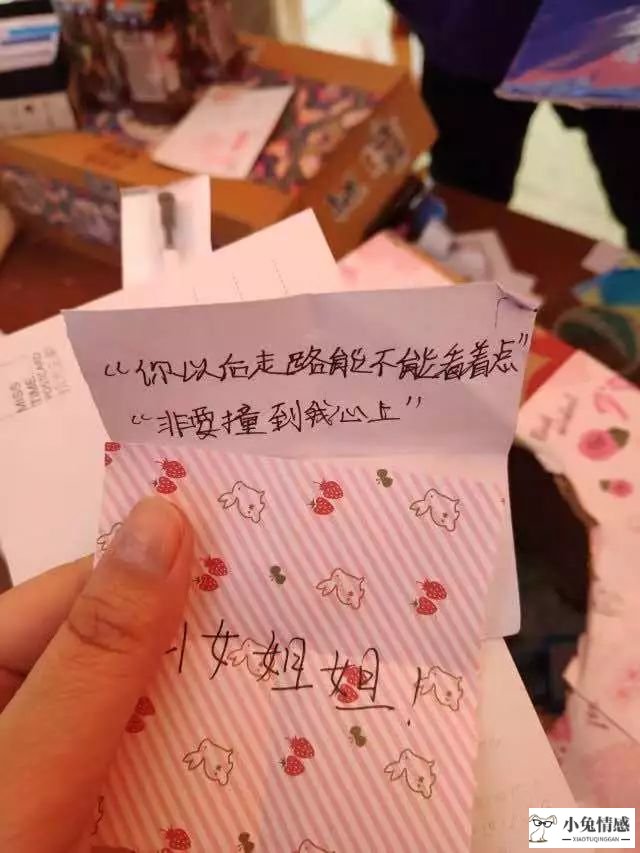 "你以后走路能不能看着点"
"非要撞到我心上"
MISS
TIME
POSTCARD
女姐姐！
小兔情感
XIAOTUQINGGAN